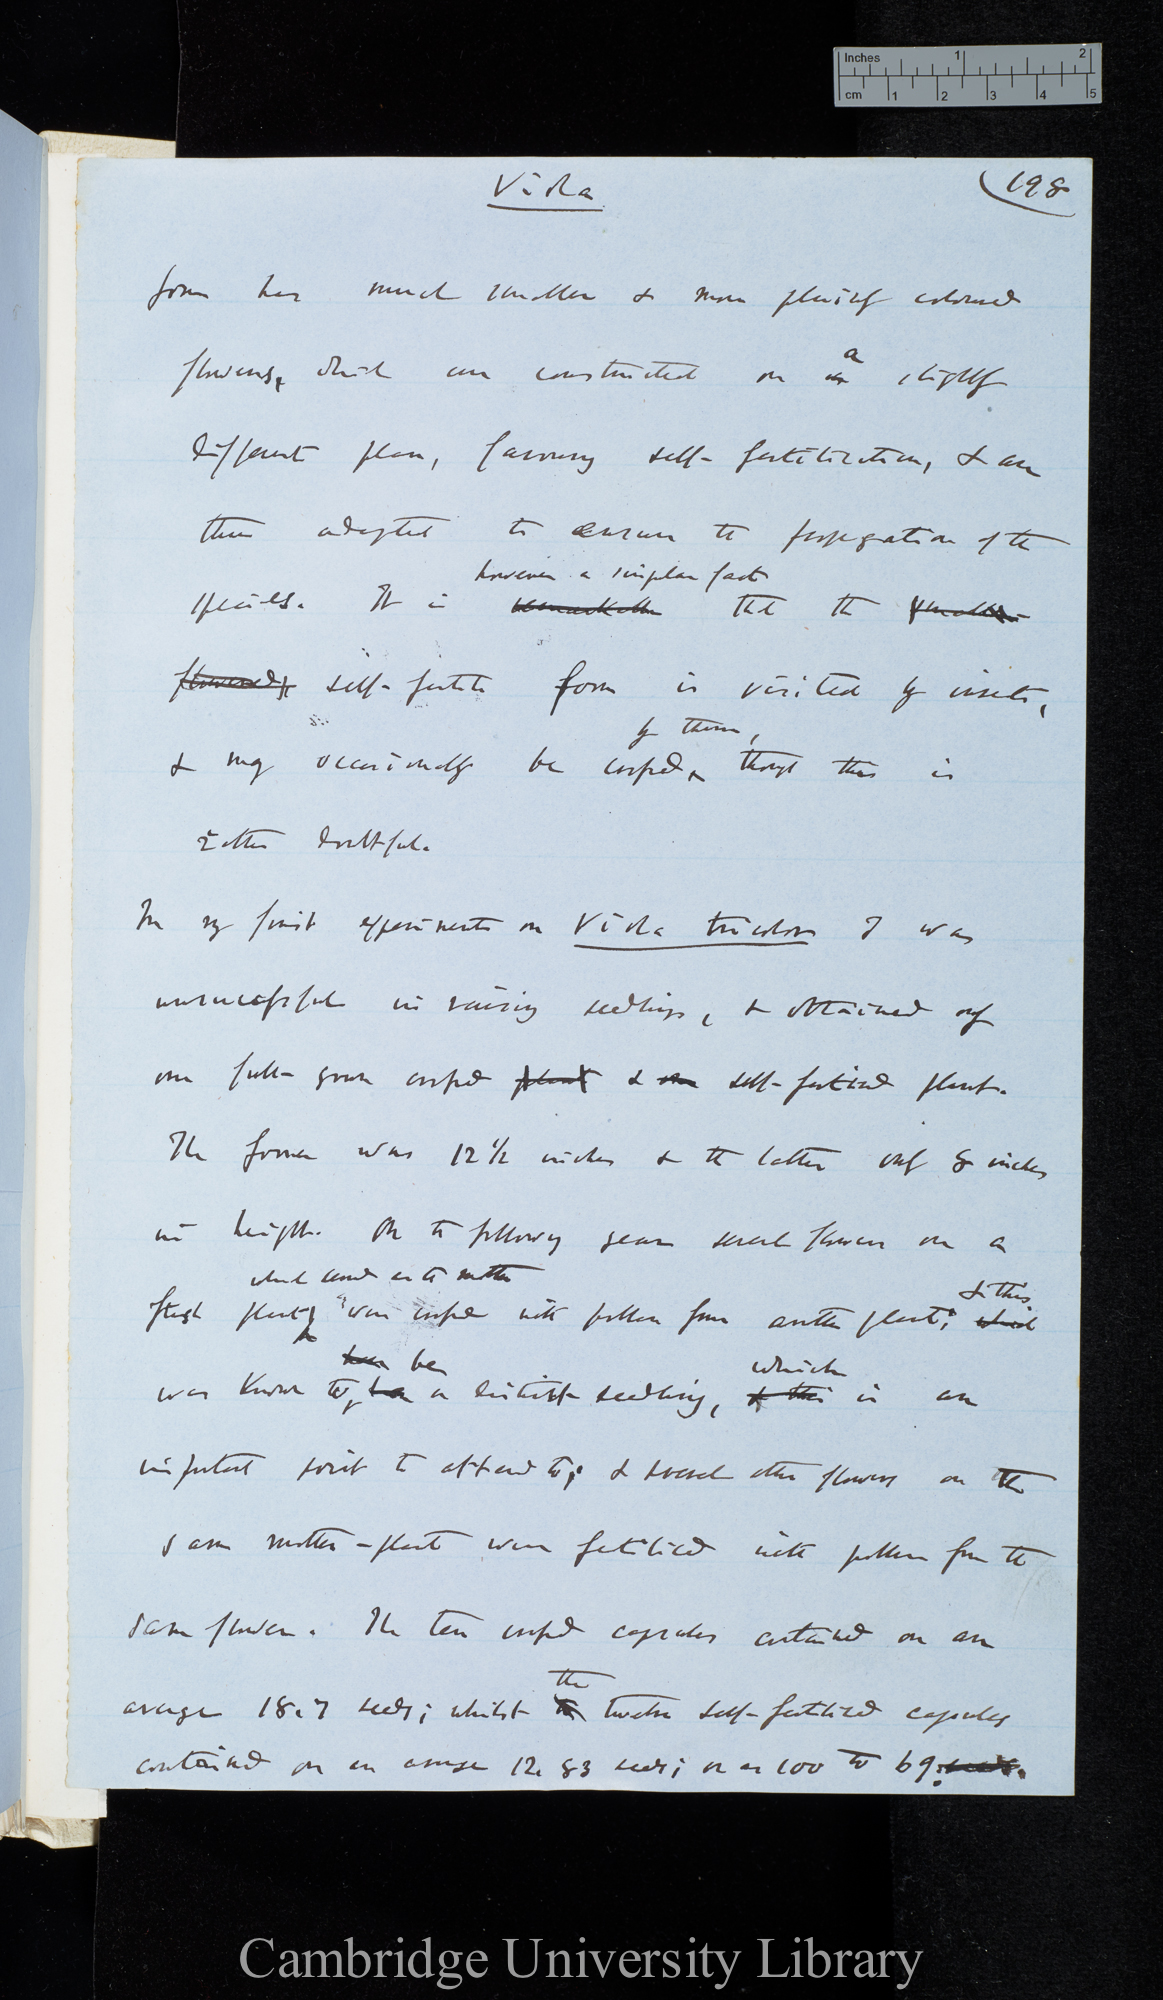 Inches 1 2
cm 1 2 3 4 5
Viola
198
form has much smaller & more plainly coloured
a
flowers, which are constructed on an slightly
different plan, favouring self-fertilization, & are
thus adapted to ensure the propagation of the
however a singular fact
species. It is remarkable that the smaller
flowered, self-fertile form is visited by insects,
by them,
& may occasionally be crossed, though this is
rather doubtful.
In my first experiments on Viola tricolor I was
unsuccessful in raising seedlings, & obtained only
one full-grown crossed plant & one self-fertilised plant.
The former was 12 1/2 inches & the latter only 8 inches
in height. On the following year several flowers on a
which served as the mother & this
fresh plant, were crossed with pollen from another plant; which
been be which
was known to be a distinct seedling, & this is an
important point to attend to; & several other flowers on the
same mother-plant were fertilised with pollen from the
same flower. The ten crossed capsules contained on an
the
average 18.7 seeds; whilst the twelve self-fertilised capsules
contained on an average 12.83 seeds; or as 100 to 69. seeds.
Cambridge University Library